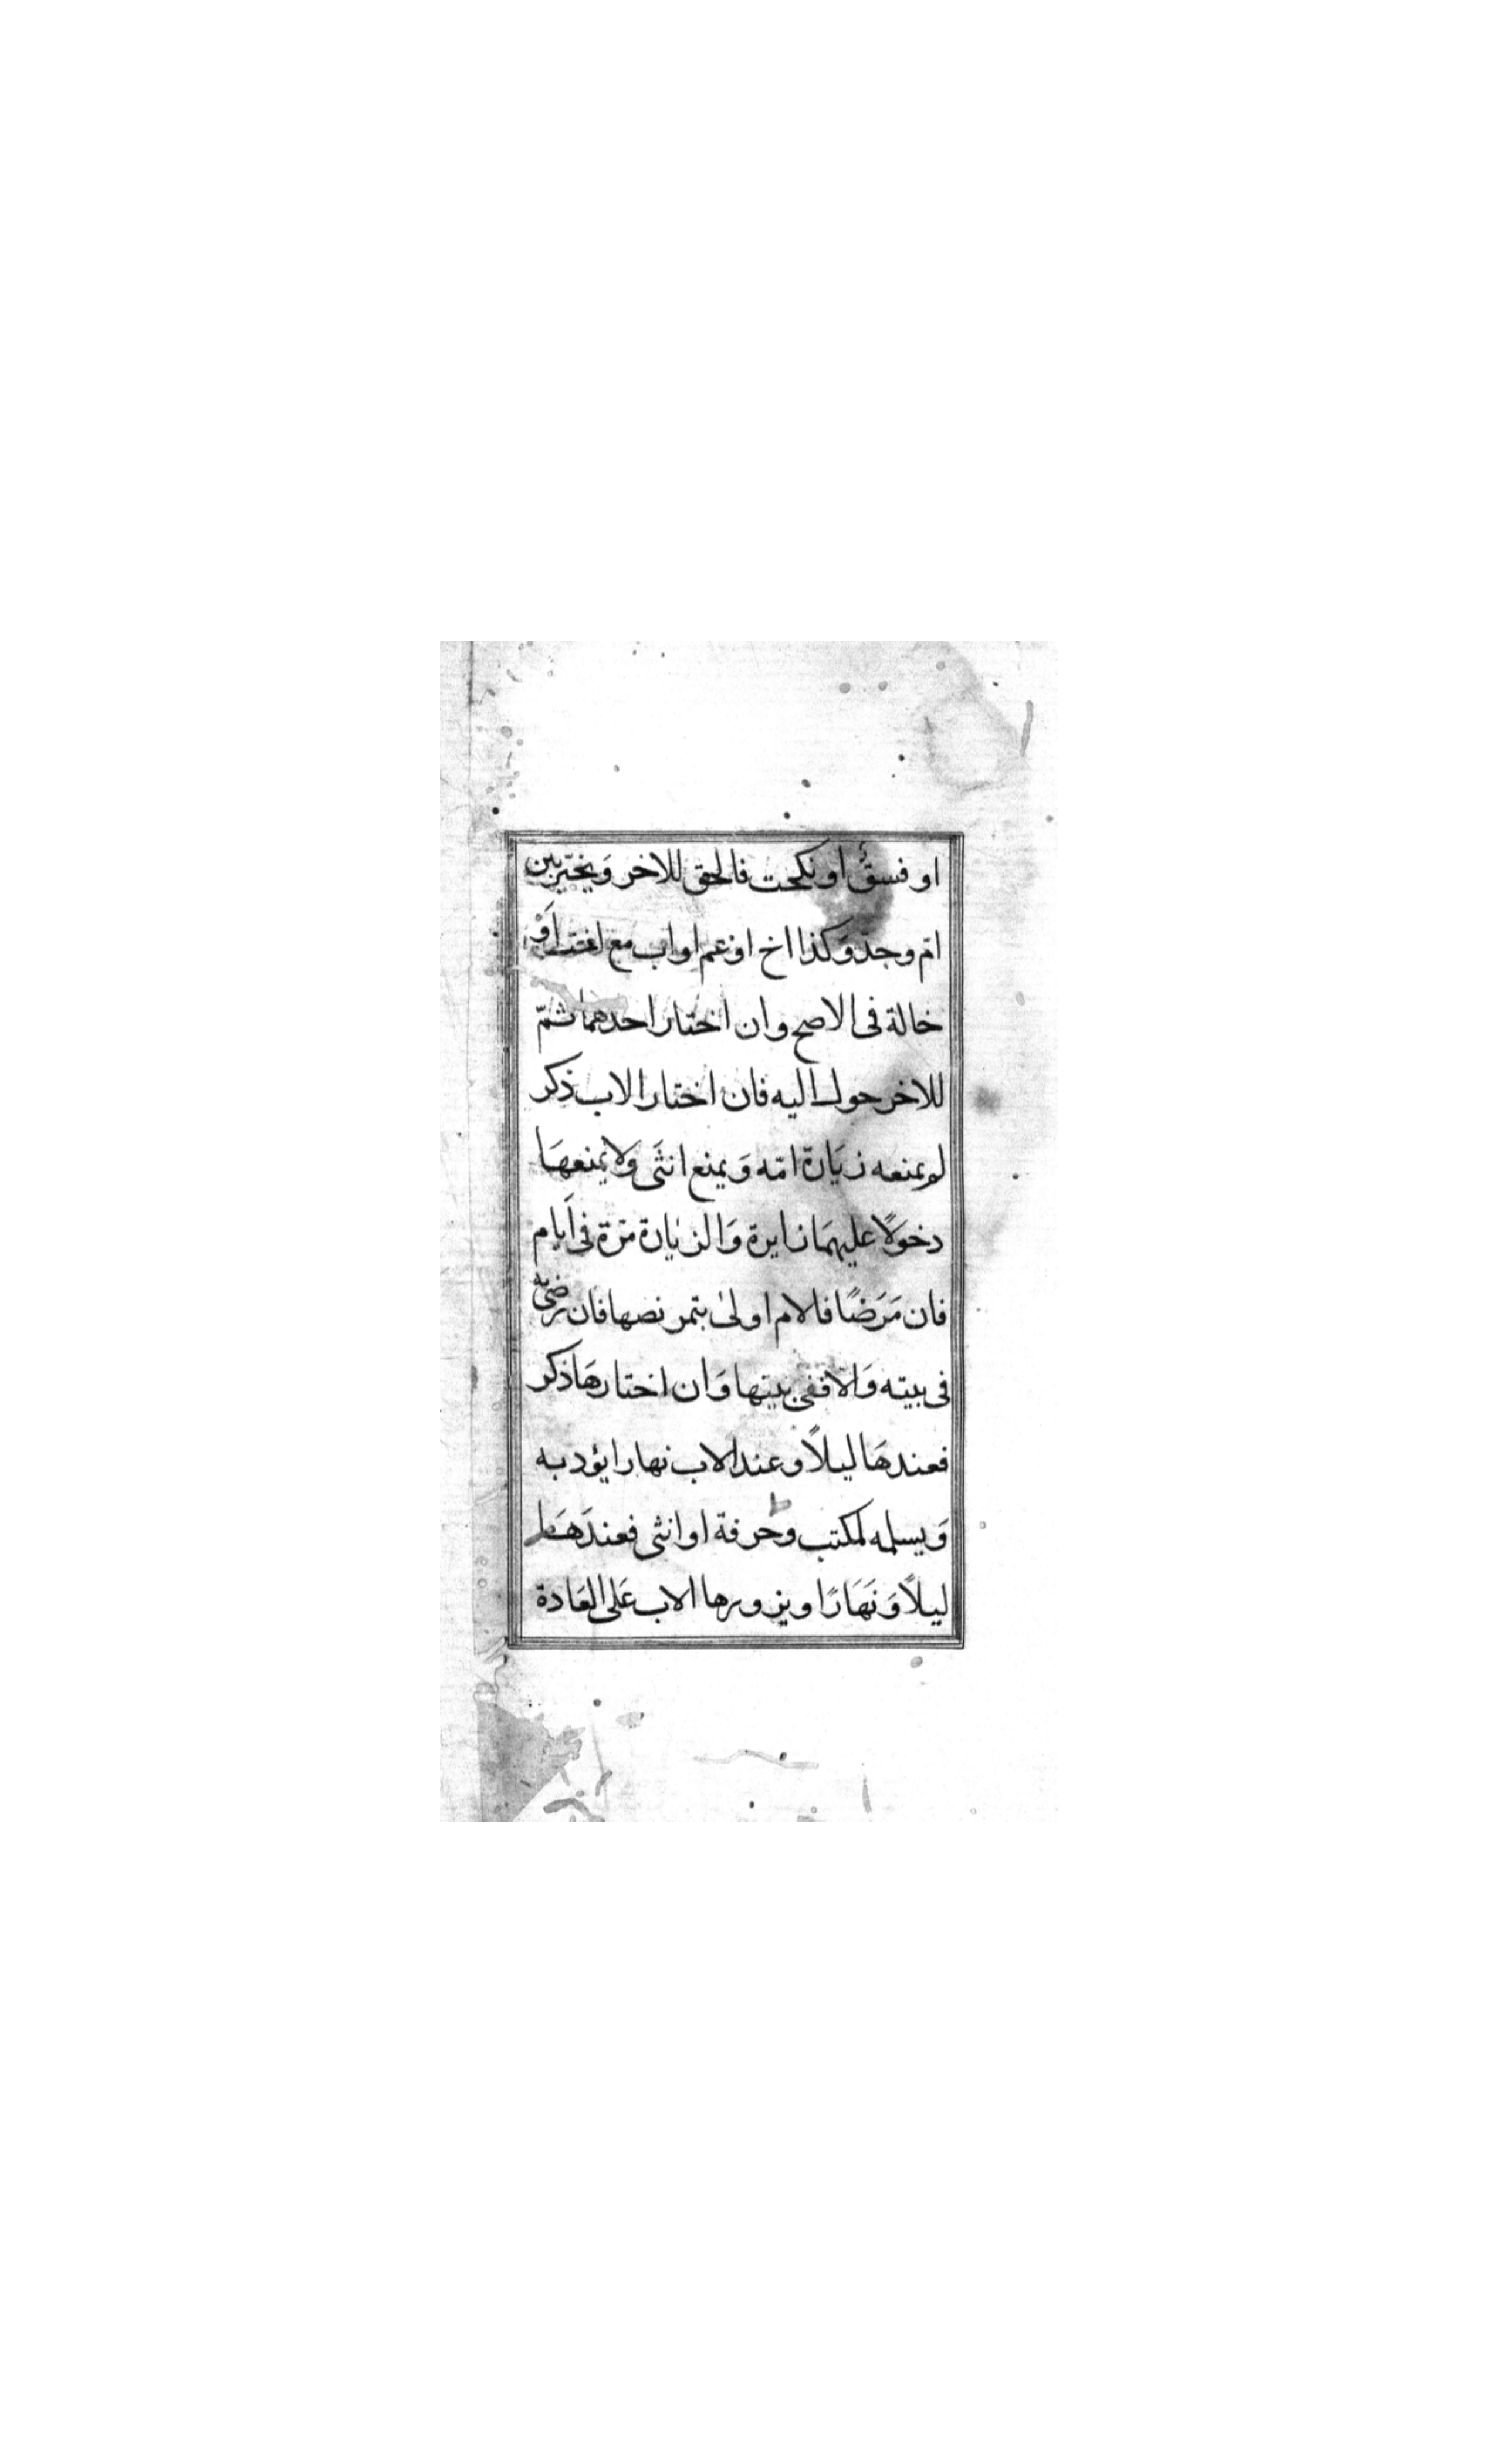 او فسق او نكحت فالحق للاخر وَيخيّر بين
امّ وجدّ وَكذا اخ او عم او اب مع اخت اَوْ
خالة فى الاصح وان اختار احدهما ثمّ
للاخر حول اليه فان اختار الاب ذكر
لم يمنعه زيَارة امّه وَيمنع انثَى وَلا يمنعهَا
دخولًا عليهمَا زايرة وَالزيارة مرّة فى اَيام
فان مَرَضًا فالام اولى بتمريضها فان رضى به
فى بيته وَالّا ففى بيتها وَان اختارهَا ذكر
فعندهَا ليلًا وعند الاب نهارا يؤدبه
وَيسلمه لمكتب وحرفة او انثى فعندَهَا
ليلًا وَنَهَارًا ويزورها الاب عَلى العَادة